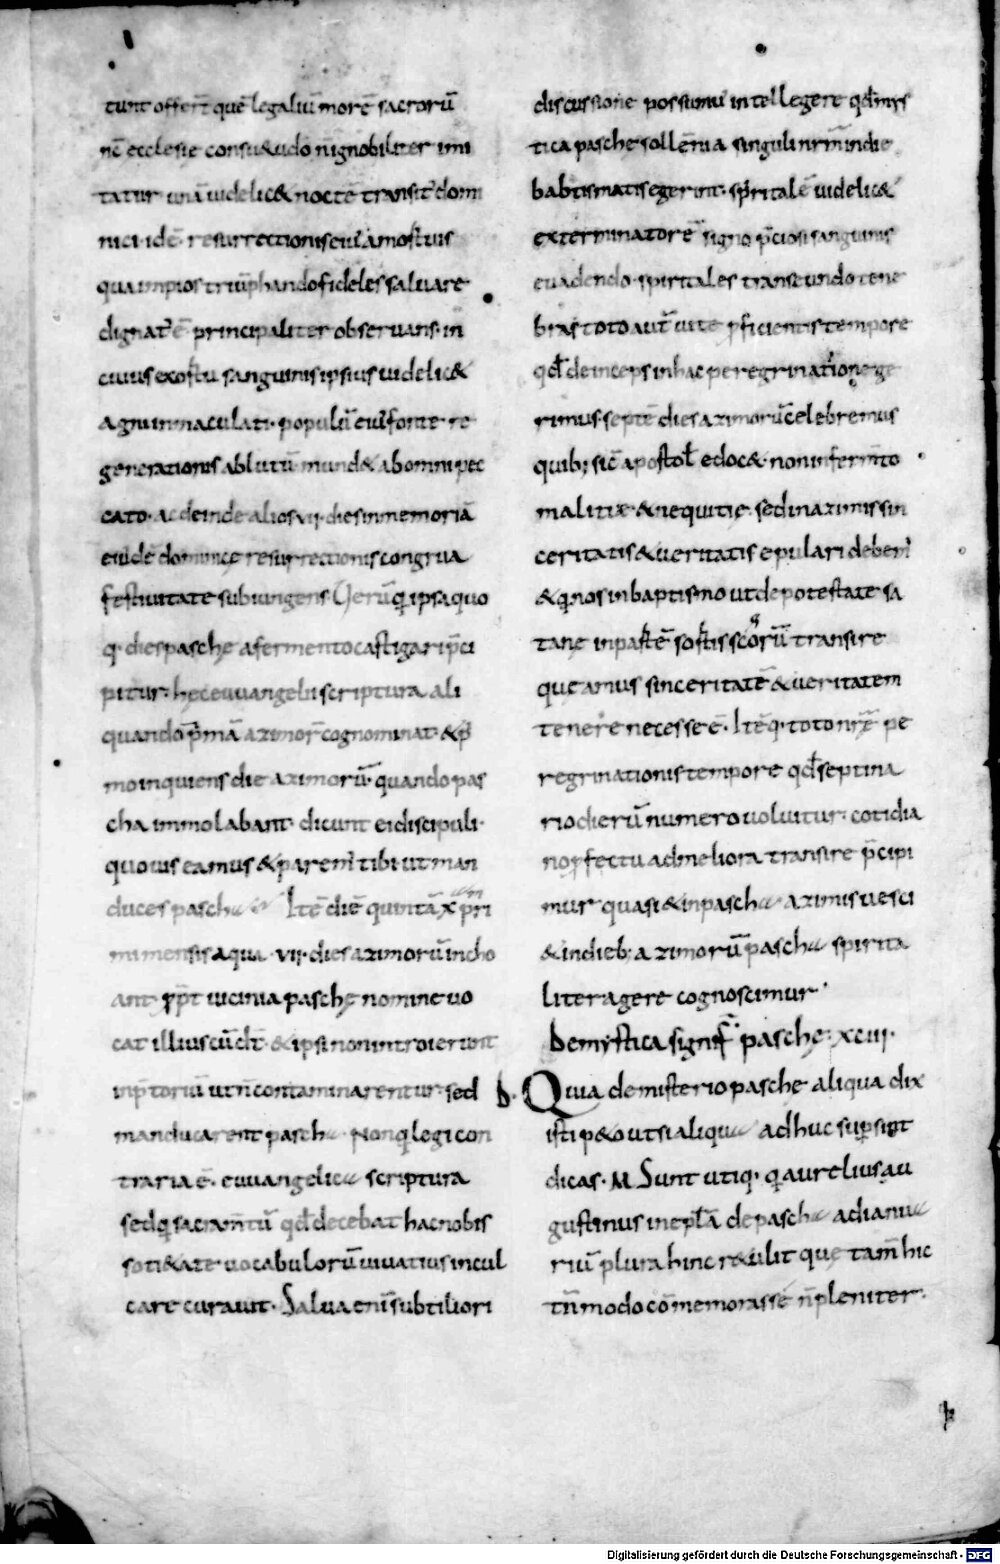 tunt offerr̄ que legaliū morē sacrorū
nc̄ ecclesie consu&udo n̄ ignobiliter imi
tatur unā uidelic& noctē transit᷑ domi
nici· idē resurrectionis eiꝰ a mortuis
qua impios triūphando fideles saluare
dignat᷑ ē principaliter obseruans· in
cuius exortu sanguinis ipsius uidelic&
agni inmaculati· populū eiꝰ fonte re
generationis ablutū mund& ab omni pec
cato· ac deinde alios ·vii· dies in memoriā
eiꝰdē dominicę resurrectionis congrua
festiuitate subiungens Uerū qꝛ ipsa quo
q· dies paschę a fermento castigari p̄ci
pitur· hęc euuangelii scriptura ali
quando p̄mā azimor̄ cognominat· & p̄
mo inquiens die azimorū· quando pas
cha immolabant· dicunt ei discipuli·
quo uis eamus & parem᷑ tibi ut man
duces pascha Itē diē quintā x p̄ri
mi mensis a qua ·vii· dies azimorū incho
ant ꝓpt̄ uicinia paschę nomine uo
cat illius cū dt̄· & ipsi non introierunt
in p̄toriū ut n̄ contaminarentur· sed
manducarent pascha Non qꝛ legi con
traria ē· euuangelica scriptura
sed qꝛ sacram̄tū qđ decebat hac nobis
soti&ate uocabulorū uiuatius incul
care curauit· Salua eni subtiliori
discussione possumꝰ intellegere qđ mys
tica pasche sollēnia singuli nr̄m in die
babtismatis egerint· sp̄ritalē uidelic&
exterminatorē signo p̄ciosi sanguinis
euadendo· spiritales transeundo tene
bras toto aut᷑ uite ꝓficientis tempore
qđ deinceps in hac peregrinatione ge
rimus· septē dies azimorū celebremus
quibꝫ sic᷑ apostoł edoc&· non in ferm̄to
malitiæ & nequitie· sed in azimis sin
ceritatis & ueritatis epulari debem᷑
& qꝛ nos in baptismo ut de potestate sa
tanę in partē sortis sc̄orū transire
queamus sinceritatē & ueritatem
tenere necesse ē· Itēq· toto nr̄æ pe
regrinationis tempore qđ septina
rio dierū numero uoluitur· cotidia
no ꝓfectu ad meliora transire p̄cipi
mur quasi & in pascha azimis uesci
& in diebꝫ azimorū pascha spirita
liter agere cognoscimur·
De mystica signif̄ paschę· xcvii·
D· Quia de misterio pasche aliqua dix
isti peto ut si aliqua adhuc suꝑsint
dicas· M Sunt utiq· qꝛ aurelius au
gustinus in epłā de pascha ad ianua
riū plura hinc r&ulit quę tam̄ hic
tn̄modo cōmemorasse n̄ pleniter·
Digitalisierung gefördert durch die Deutsche Forschungsgemeinschaft - DFG